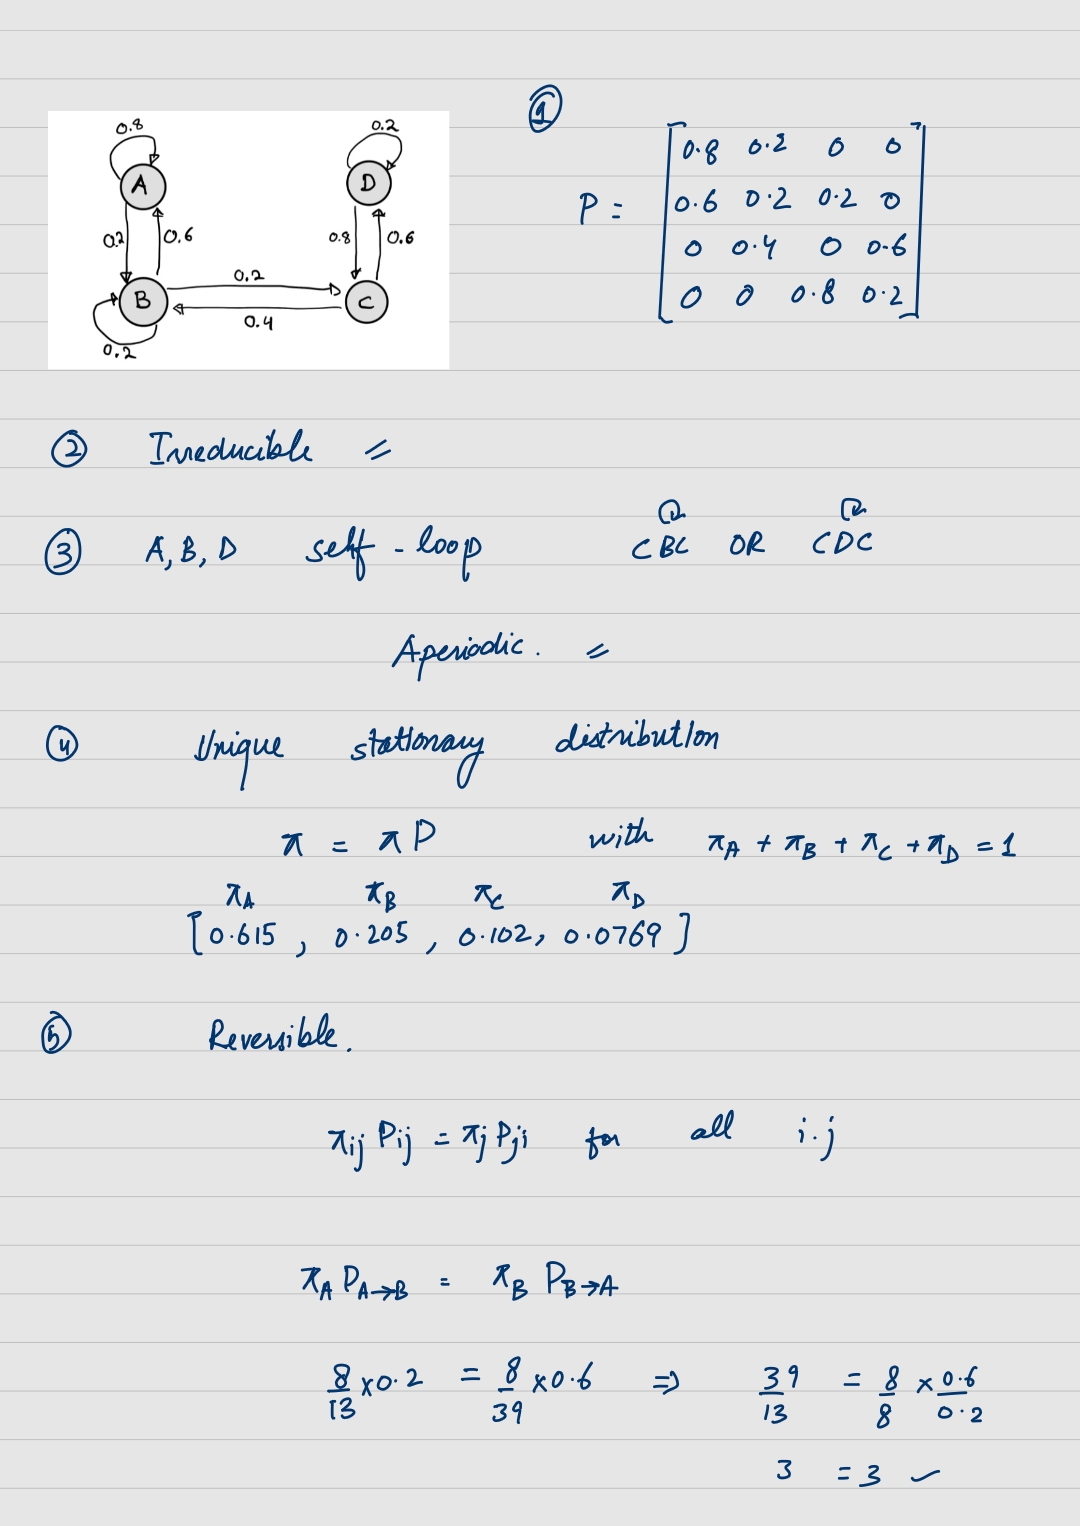 0.8
A
0.2
0.6
B
0.2
0.2
0.4
0.2
D
0.8
0.6
C
①
P = [0.8 0.2 0 0
0.6 0.2 0.2 0
0 0.4 0 0.6
0 0 0.8 0.2]
② Irreducible
③ A, B, D self-loop CBC OR CDC
Aperiodic.
④ Unique stationary distribution
π = πP with π_A + π_B + π_C + π_D = 1
π_A π_B π_C π_D
[0.615, 0.205, 0.102, 0.0769]
⑤ Reversible.
π_ij P_ij = π_j P_ji for all i.j
π_A P_A→B = π_B P_B→A
8/13 × 0.2 = 8/39 × 0.6 ⇒ 39/13 = 8/8 × 0.6/0.2
3 = 3 ✓